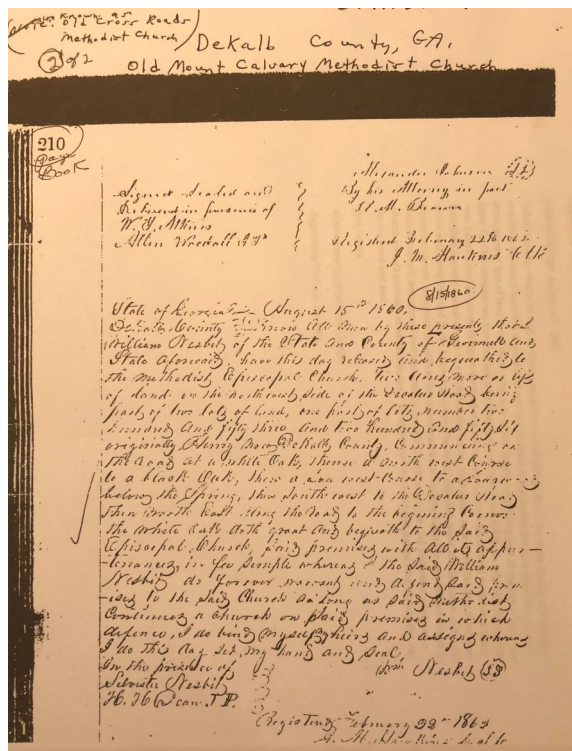 Old Cross Roads
Methodist Church
DeKalb County, GA.
2 of 2
Old Mount Calvary Methodist Church
210
Page
Book
Alexander Johnson
Signed Sealed and By his Attorney in fact
Delivered in presence of
W. Atkins
Allen Woodall
Registered February 22
J. M. Hawkins
8/15/1860
State of Georgia August 15th 1860.
DeKalb County Know All Men by these presents that I
William Nesbit of the State and County of Gwinnett and
State aforesaid, have this day released and bequeathed to
the Methodist Episcopal Church, two acres more or less
of land on the north west side of the Decatur Road being
part of two lots of land, one part of lot, number two
hundred and fifty three and two hundred and fifty six
originally Henry now DeKalb County, Commencing on
the Road at a white Oak, thence a north west Course
to a black Oak, thence a west Course to a
below the Spring, then south west to the Decatur Road
then North East along the road to the beginning Corner
the white Oak doth grant and bequeath to the said
Episcopal Church, said premises with all its appur-
tenances, in fee simple whereas the said William
Nesbit do forever warrant and said prem-
ises to the said Church as long as said Methodist
Continues a Church on said premises in which
defence, I do bind myself heirs and assigns whereas
I do this day set my hand and seal,
In the presence of Wm Nesbit
Silvester Nesbit
J.P.
Registered February 22nd 1862